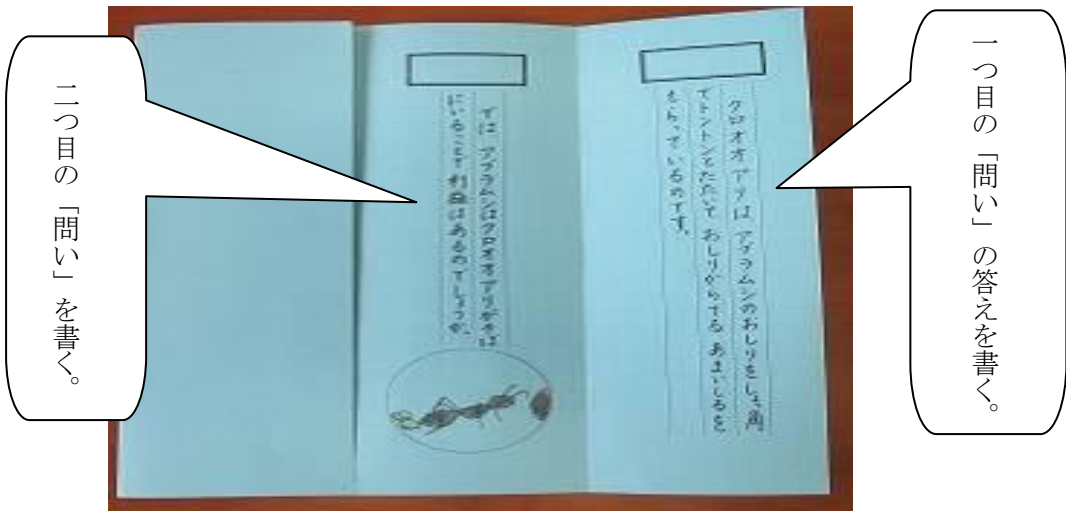 一つ目の「問い」の答えを書く。
クロオオアリは アブラムシのおしりをしょっ角
でトントンとたたいて おしりからでる あまいしるを
もらっているのです。
では アブラムシはクロオオアリがそば
にいることで 利益はあるのでしょうか。
二つ目の「問い」を書く。